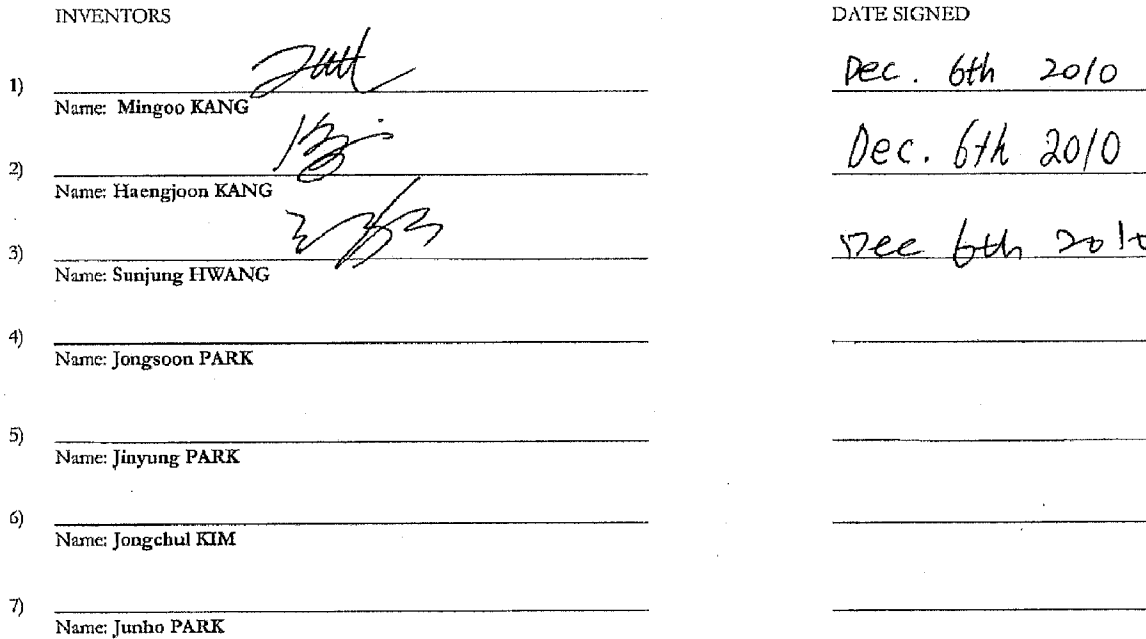 INVENTORS DATE SIGNED
1) Dec. 6th 2010
Name: Mingoo KANG
2) Dec. 6th 2010
Name: Haengjoon KANG
3) Dec 6th 2010
Name: Sunjung HWANG
4)
Name: Jongsoon PARK
5)
Name: Jinyung PARK
6)
Name: Jongchul KIM
7)
Name: Junho PARK